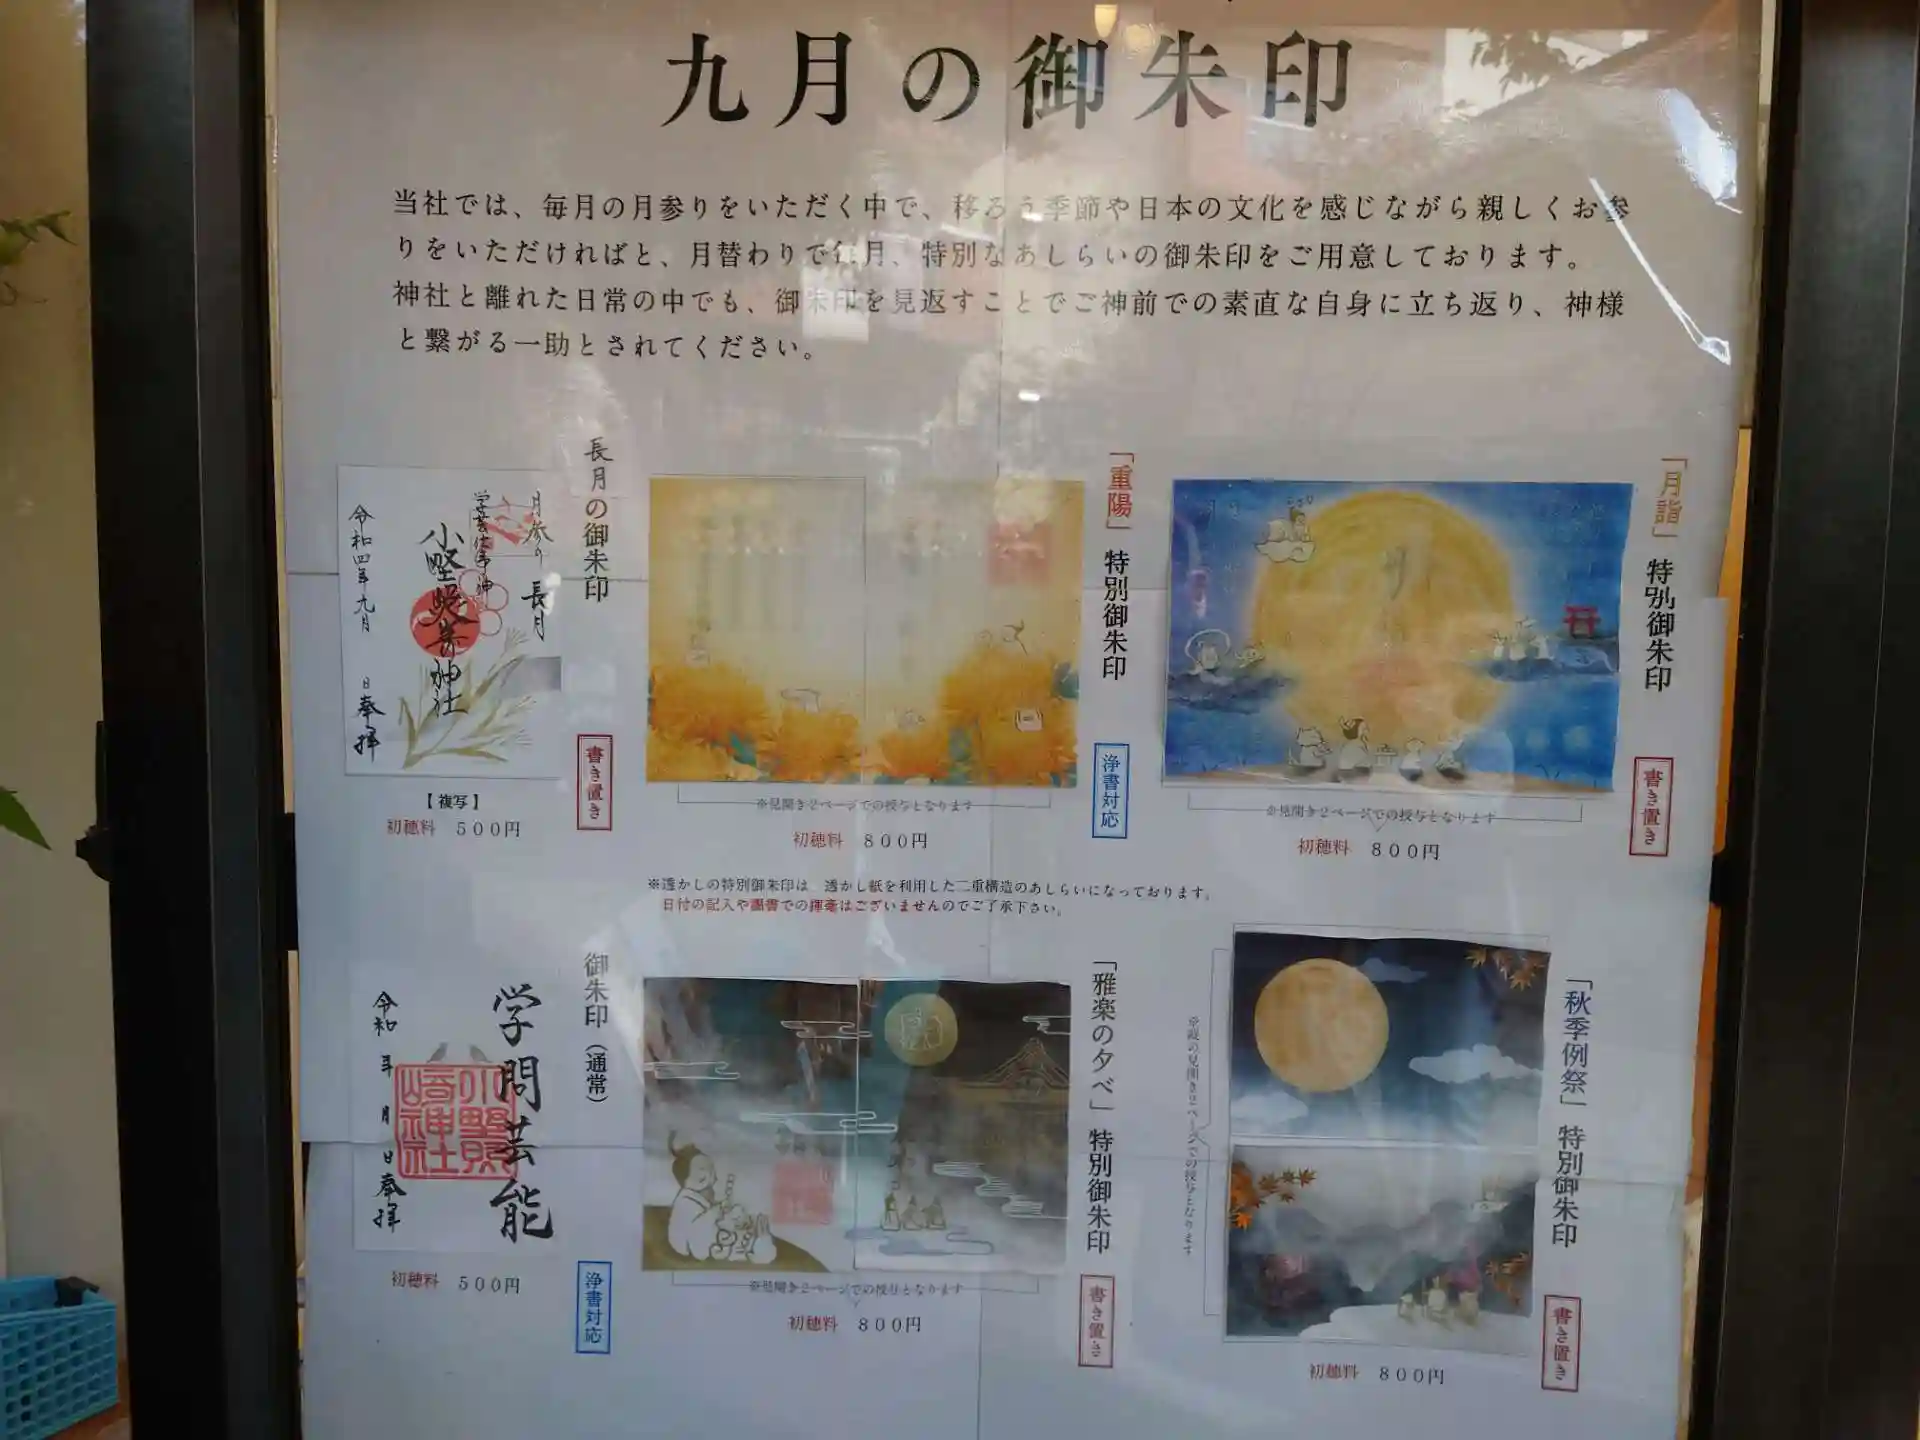 九月の御朱印
当社では、毎月の月参りをいただく中で、移ろう季節や日本の文化を感じながら親しくお参
りをいただければと、月替わりで毎月、特別なあしらいの御朱印をご用意しております。
神社と離れた日常の中でも、御朱印を見返すことでご神前での素直な自身に立ち返り、神様
と繋がる一助とされてください。
長月の御朱印
月参り 長月
学芸仕事神
小野照崎神社
令和四年九月 日奉拝
書き置き
【複写】
初穂料 500円
「重陽」特別御朱印
浄書対応
※見開き2ページでの授与となります
初穂料 800円
「月詣」特別御朱印
書き置き
※見開き2ページでの授与となります
初穂料 800円
※透かしの特別御朱印は、透かし紙を利用した二重構造のあしらいになっております。
日付の記入や墨書での揮毫はございませんのでご了承下さい。
御朱印(通常)
学問芸能
小野照崎神社
令和 年 月 日奉拝
初穂料 500円
浄書対応
「雅楽の夕べ」特別御朱印
書き置き
※見開き2ページでの授与となります
初穂料 800円
「秋季例祭」特別御朱印
書き置き
※縦の見開き2ページでの授与となります
初穂料 800円